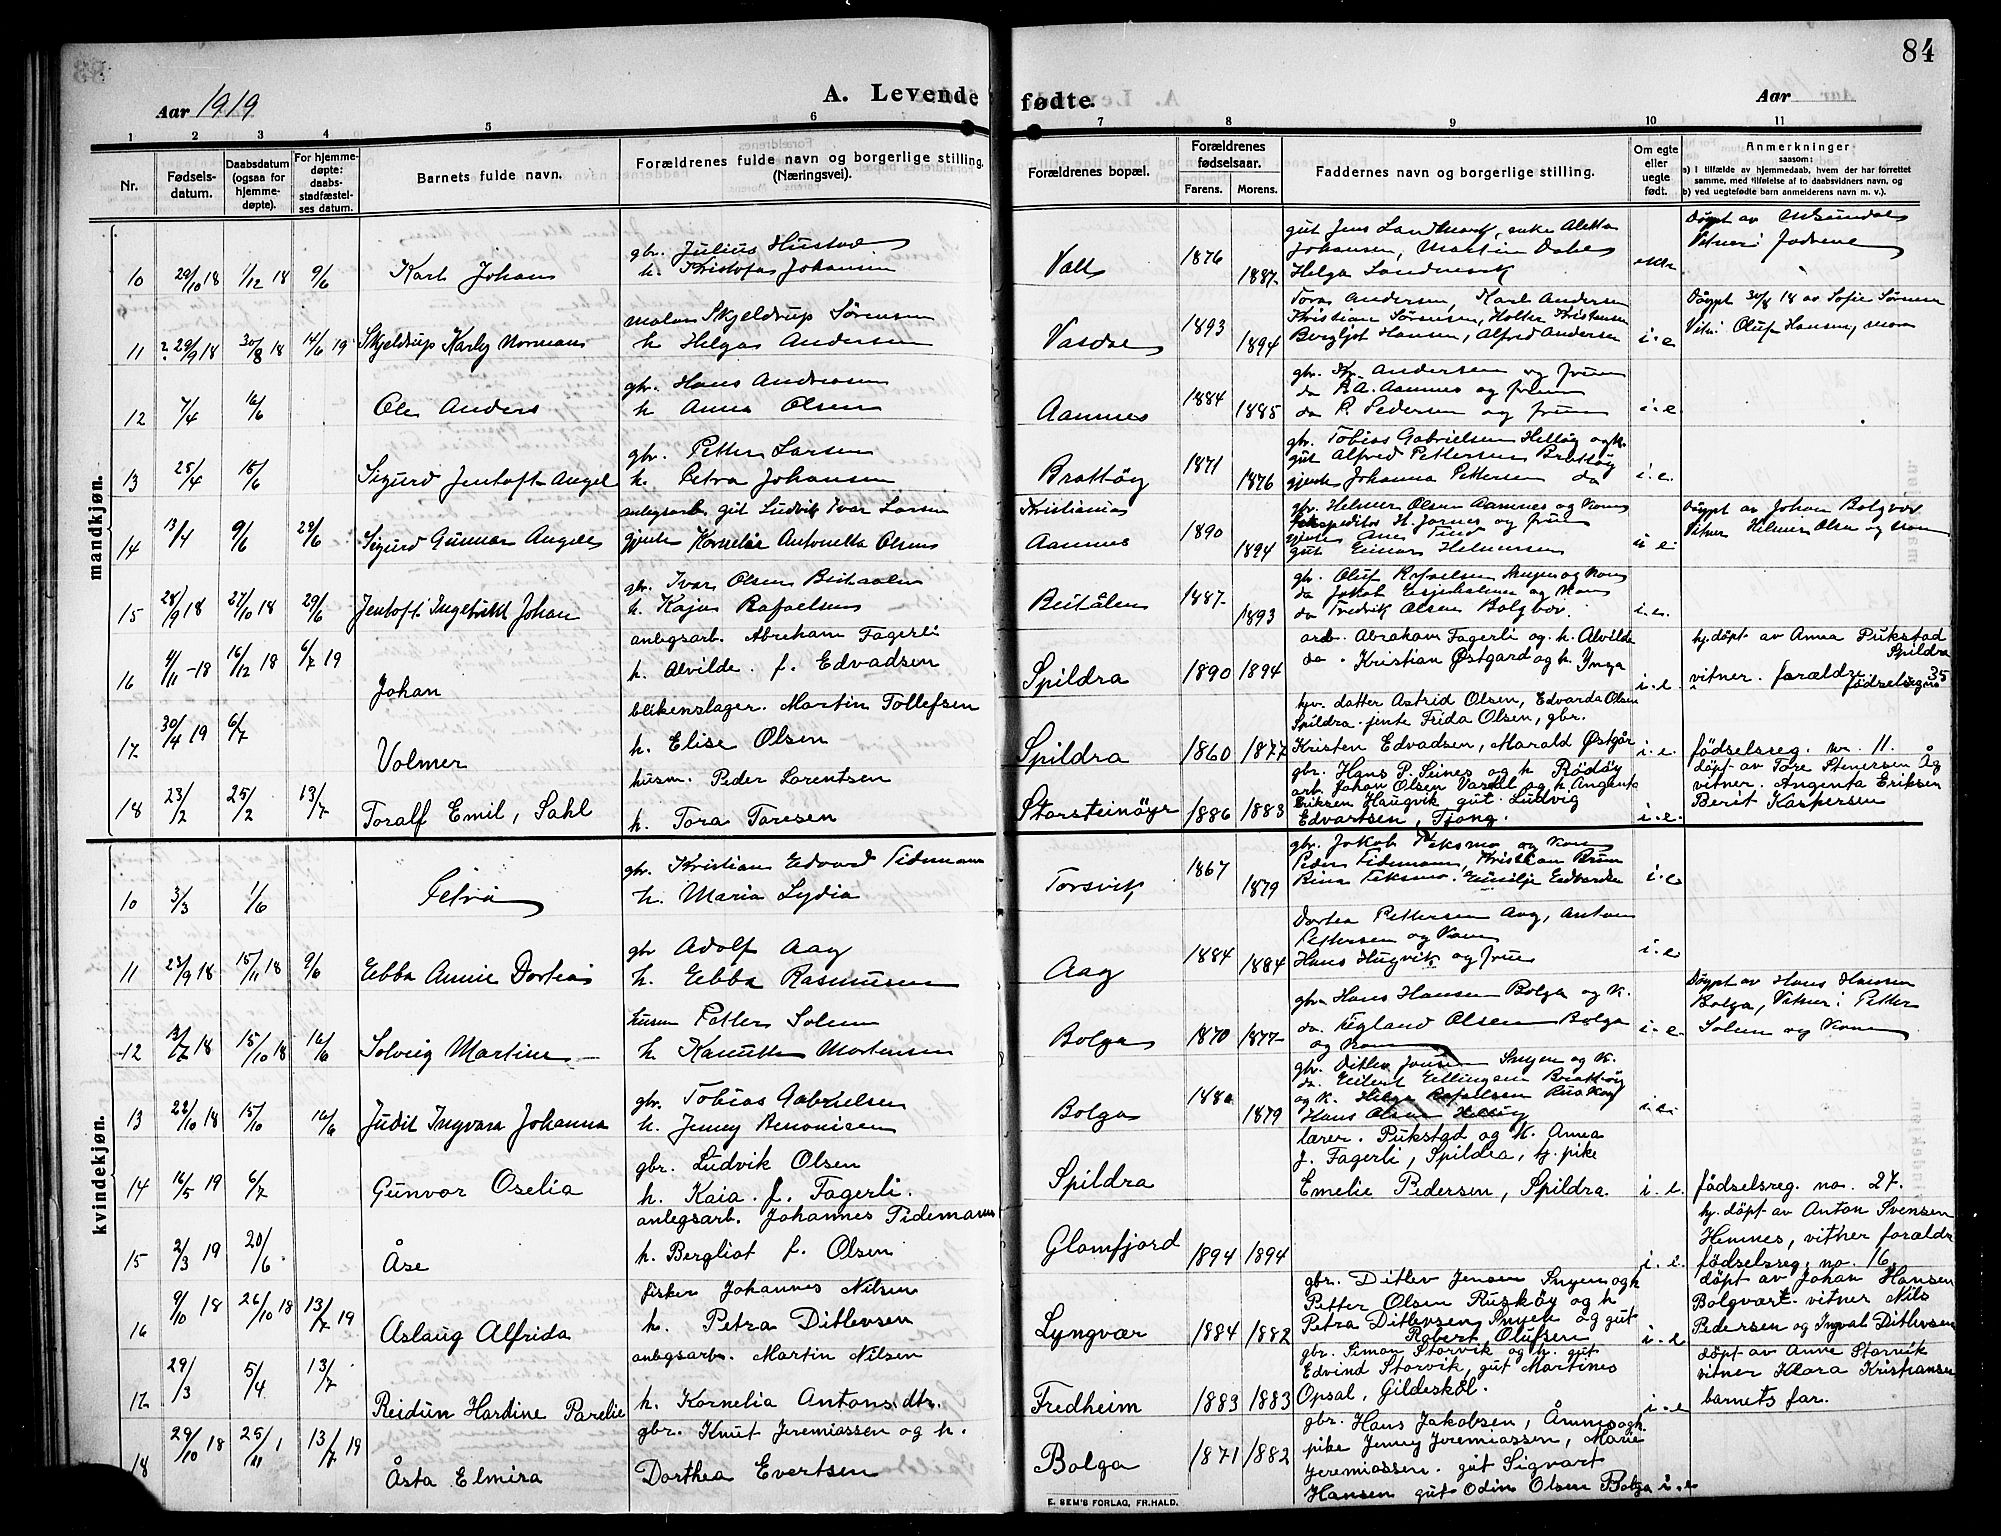 84
Aar 1919
A. Levende fødte.
Aar
1 2 3 4 5 6 7 8 9 10 11
Nr.
Fødsels-
datum.
Daabsdatum
(ogsaa for
hjemme-
døpte).
For hjemme-
døpte:
daabs-
stadfæstel-
ses datum.
Barnets fulde navn.
Forældrenes fulde navn og borgerlige stilling.
(Næringsvei).
Forældrenes bopæl.
Forældrenes
fødselsaar.
Farens. Morens.
Faddernes navn og borgerlige stilling.
Om egte
eller
uegte
født.
Anmerkninger
saasom:
a) I tilfælde av hjemmedaab, hvem der har forrettet
samme, med tilføielse af to daabsvidners navn, og
b) ved uegtefødte barn anmelderens navn m. v.).
mandkjøn.
10 29/10 18 1/12 18 9/6 Karl Johans
gbr. Julius Hustad
h. Johansen
1876 1887
gut Jens Landmark, enke
Johansen, Martin
Helga Landmark
Døypt av
Vitner:
11 29/9 18 30/8 18 14/6 19 Skjeldrup Karly Normans
maler Skjeldrup Sørensen
h. Helga Andersen
1893 1894
Andersen, Karl Andersen
Kristian Sørensen, Kristensen
Bergljot Hansen, Alfred Andersen
i. e.
Døypt 30/8 18 av Sofie Sørensen
Vit: Oluf Hansen, mora
12 7/4 16/6 Ole Anders
gbr. Hans Andersen
h. Anna Olsen
Aamnes 1884 1885
gbr. Kr. Andersen og frue
da A. Aamnes og frue
da P. Pedersen og frue
i. e.
13 25/4 15/6 Sigurd Jentoft Angel
gbr. Petter Larsen
h. Petra Johansen
Brattøy 1871 1876
gbr. Tobias Gabrielsen Helløy og k.
gut Alfred Pettersen Brattøy
gjente Johanna Pettersen da
i. e.
14 13/4 9/6 29/6 Sigurd Gunnar Angel
anlegsarb. gut Ludvik Ivar Larsen
gjente Kornelie Antonetta Olsens
Kristiania
Aamnes 1890 1894
gbr. Helmer Olsen Aamnes og kone
og frue
gut Einar Helmersen
u e.
Døypt av Johan Bolgvær
Vitner Helmer Olsen og kone
15 28/9 18 27/10 18 29/6 Jentoft Ingebrikt Johan
gbr. Ivar Olsen
h. Kaja Rafaelsen
1887 1893
gbr. Oluf og kone
da Jakob og kone
da Fredrik Olsen Bolgvær
i. e.
16 4/11 -18 16/12 18 6/7 19 Johan
anlegsarb. Abraham Fagerli
h. Alvilde. f. Edvadsen
Spildra 1890 1894
arb. Abraham Fagerli og h. Alvilde
da. Kristian Østgard og h. Ynga
i. e.
hj. døpt av Anna Pukstad
Spildra
vitner. forældre
fødselsreg no 35
17 30/4 19 6/7 Volmer
blikenslager. Martin Tollefsen
h. Elise Olsen
Spildra 1860 1877
hjv. datter Astrid Olsen, Edvarda Olsen
Spildra. jente Frida Olsen, gbr.
Kristen Edvadsen, Marald Østgår
i. e.
fødselsreg. nr. 11.
18 23/2 25/2 13/7 Toralf Emil, Sahl
husm. Peder Lorentsen
h. Tora Toresen
Storsteinøyr 1886 1883
gbr. Hans P. Seines og h. Rödöy
arb. Johan Olsen Vasdal og h. Angenta
Eriksen Haugvik gut. Ludvig
Edvartsen, Tjong.
i. e.
döpt av Tore Stenersen Åg
vitner. Angenta Eriksen
Berit Kaspersen
kvindekjøn.
10 3/3 1/6
gbr. Kristian Edvard Tidemann
h. Maria Lydia
Torsvik 1867 1879
gbr. Jakob Teksmo og kone
Peder Tidemann, Kristian
Teksmo. Emilje Edvardsen
i. e
11 23/9 18 15/11 18 9/6 Ebba Annie Dortea
gbr Adolf Aag
h. Ebba Rasmussen
Aag 1884 1884
Dortea Pettersen Aag, Anton
Pettersen og kone
Hans Hugvik og frue
i. e
12 13/7 18 15/10 18 16/6 Solveig Martine
husm Petter Solem
h. Mortensen
Bolga 1870 1877
gbr Hans Hansen Bolga og k.
da. Olsen Bolga
og kone
i. e.
Døypt av Hans Hansen
Bolga, Vitner: Petter
Solem og kone
13 22/10 18 15/10 16/6 Judit Ingvara Johanna
gbr. Tobias Gabrielsen
h. Jenny Benonisen
Bolga 1879
gbr. Ditlev Jensen Snyen og k.
da. Eilert Ellingsen Brattøy
og k. Helga Rafaelsen Ruskøy
Hans Olsen Helløy
i. e.
14 16/5 19 6/7 Gunvor Oselia
gbr. Ludvik Olsen
h. Kaia. f. Fagerli.
Spildra
lærer. Pukstad og k. Anna
J. Fagerli, Spildra, hj. pike
Emelie Pedersen, Spildra.
i. e.
fødselsreg. no. 27.
15 2/3 19 20/6. Åse
anlegsarb. Johannes Tidemann
h. Bergliot f. Olsen
Glomfjord 1894 1894
i. e.
hj. döpt av Anton Svensen
Hemnes, vitner forældr
fødselsreg. no. 16.
16 9/10 18 26/10 18 13/7 19 Aslaug Alfrida
fisker Johannes Nilsen
h. Petra Ditlevsen
Lyngvær 1884 1882
gbr. Ditlev Jensen Snyen og h
Petter Olsen Ruskøy og h
Petra Ditlevsen Snyen og gut
Robert Olufsen
i. e
döpt av Johan Hansen
Bolgvært. vitner Nils
Pedersen og Ingval Ditlevsen
17 29/3 5/4 13/7. Reidun Hardine Parelie
anlegsarb. Martin Nilsen
h. Kornelia Antons.dtr.
Fredheim 1883 1883
gbr. Simon Storvik og h. gut
Edvind Storvik, gut Martines
Opsal, Gildeskål.
i. e
döpt av Anne Storvik
vitner Klara Kristiansen
barnets far.
18 29/10 18 25/11 1 13/7 19 Åsta Elmira
gbr. Knut Jeremiassen og h.
Dorthea Evertsen
Bolga 1871 1882
gbr. Hans Jakobsen, Åmnes og h.
pike Jenny Jeremiassen, Marie
Jeremiassen. gut Sigvart
Hansen gut Odin Olsen Bolga i. e
E. SEM'S FORLAG, FR.HALD.